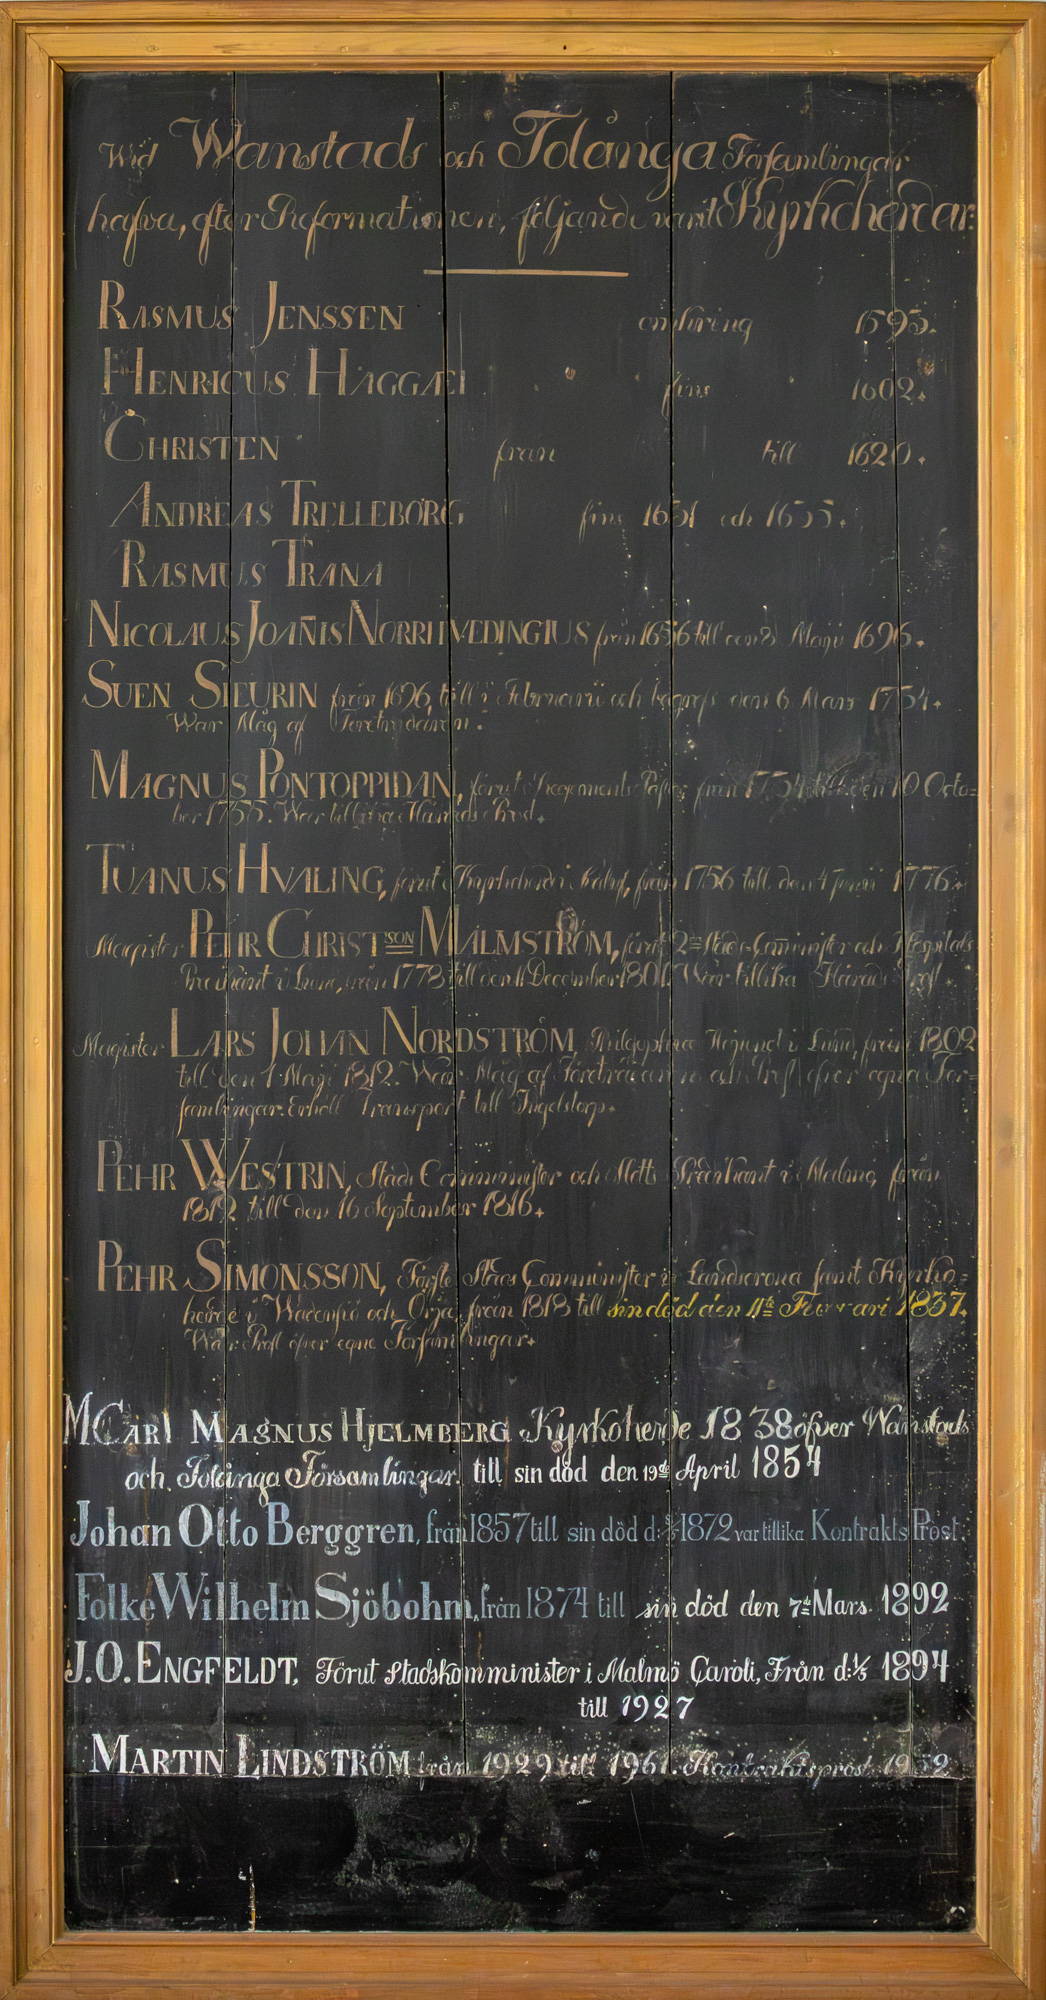 Wid Wanstads och Tolånga Församlingar
hafva, efter Reformationen, följande varit Kyrkoherdar.
RASMUS JENSSEN omkring 1595.
HENRICUS HAGGÆI fins 1602.
CHRISTEN från till 1620.
ANDREAS TRELLEBORG fins 1631 och 1635.
RASMUS TRANA
NICOLAUS JOAÑIS NORRHVEDINGIUS från 1656 till den Maji 1696.
SUEN SIEURIN från 1696, till i Februarii och begrofs den 6 Mars 1734.
War Måg af Företrädaren.
MAGNUS PONTOPPIDAN, förut Regements Past. från 1734 till den 10 Octo=
ber 1755. War tillika Härads Prost.
TUANUS HVALING, förut Kyrkoherde i från 1756 till den 4 Junii 1776.
Magister PEHR CHRISTSON MALMSTRÖM, förut 2 Stads-Comminister och Hospitals
Predikant i Lund, från 1778 till den December 1801. War tillika Härads Prost.
Magister LARS JOHAN NORDSTRÖM, Philosophiæ i Lund, från 1802
till den 1 Maji 1812. War Måg af Företrädaren och Prost öfver egna För=
samlingar. Erhöll Transport till Ingelstorp.
PEHR WESTRIN, Stads Comminister och Slotts Predikant i Malmö, från
1812 till den 16 September 1816.
PEHR SIMONSSON, Förste Stads Comminister i Landscrona samt Kyrko=
herde i och Örja, från 1818 till sin död den 11te Februari 1837.
War Prost öfver egne Församlingar.
M CARL MAGNUS HJELMBERG Kyrkoherde 1838 öfver Wanstads
och Tolånga Församlingar. till sin död den 19de April 1854
Johan Otto Berggren, från 1857 till sin död d. 1872 var tillika Kontrakts Prost.
Folke Wilhelm Sjöbohm, från 1874 till sin död den 7de Mars. 1892
J.O. ENGFELDT, Förut Stadskomminister i Malmö Caroli, Från d: 1/5 1894
till 1927
MARTIN LINDSTRÖM från 1929 till 1961. Kontraktsprost